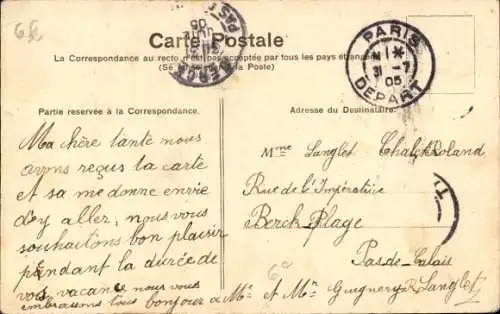 Carte Postale
La Correspondance au recto n'est pas acceptée par tous les pays étrangers
(Se à la Poste)
PARIS
31 - 7
05
DEPART
BERCK
05
Partie reservée à la Correspondance.
Adresse du Destinataire.
Ma chère tante nous
avons reçus la carte
et sa me donne envie
d'y aller, nous vous
souhaitons bon plaisir
pendant la durée de
vos vacance nous vous
embrassons tous bonjour a Mr et Mme Langlet
Mme Langlet Chalet Roland
Rue de l'Impératrice
Berck-Plage
Pas-de-Calais